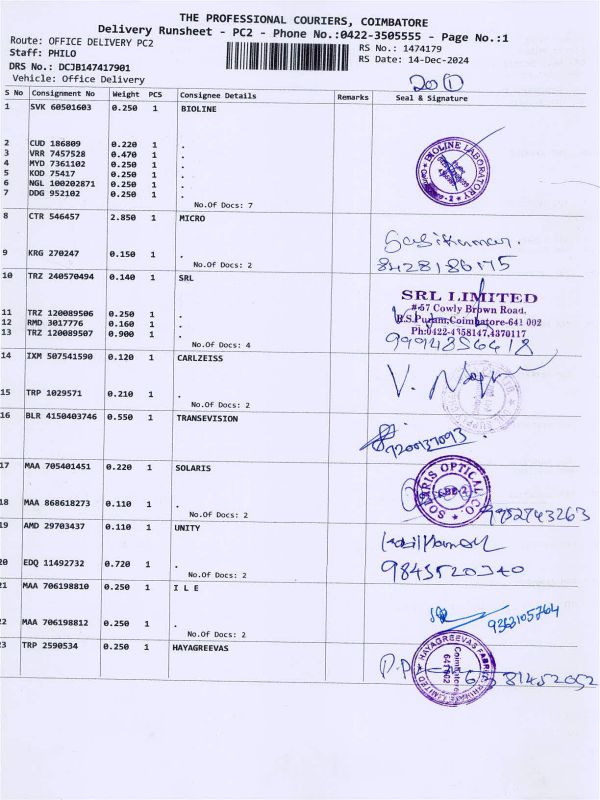 THE PROFESSIONAL COURIERS, COIMBATORE
Delivery Runsheet - PC2 - Phone No.:0422-3505555 - Page No.:1
Route: OFFICE DELIVERY PC2
RS No.: 1474179
Staff: PHILO
RS Date: 14-Dec-2024
DRS No.: DCJB147417901
Vehicle: Office Delivery
S No Consignment No Weight PCS Consignee Details Remarks Seal & Signature
1 SVK 60501603 0.250 1 BIOLINE
2 CUD 186809 0.220 1 .
3 VRR 7457528 0.470 1 .
4 MYD 7361102 0.250 1 .
5 KOD 75417 0.250 1 .
6 NGL 100202871 0.250 1 .
7 DDG 952102 0.250 1 .
No.Of Docs: 7
BIOLINE LABORATORY
8 CTR 546457 2.850 1 MICRO
Sasikumar.
9 KRG 270247 0.150 1 .
No.Of Docs: 2
8428186175
10 TRZ 240570494 0.140 1 SRL
SRL LIMITED
#-57 Cowly Brown Road,
R.S.Puram,Coimbatore-641 002
Ph:0422-4358147,4370117
11 TRZ 120089506 0.250 1 .
12 RMD 3017776 0.160 1 .
13 TRZ 120089507 0.900 1 .
No.Of Docs: 4
14 IXM 507541590 0.120 1 CARLZEISS
15 TRP 1029571 0.210 1 .
No.Of Docs: 2
16 BLR 4150403746 0.550 1 TRANSEVISION
17 MAA 705401451 0.220 1 SOLARIS
SOLARIS OPTICAL CO.
18 MAA 868618273 0.110 1 .
No.Of Docs: 2
9952743263
19 AMD 29703437 0.110 1 UNITY
20 EDQ 11492732 0.720 1 .
No.Of Docs: 2
9843520340
21 MAA 706198810 0.250 1 I L E
9363105764
22 MAA 706198812 0.250 1 .
No.Of Docs: 2
23 TRP 2590534 0.250 1 HAYAGREEVAS